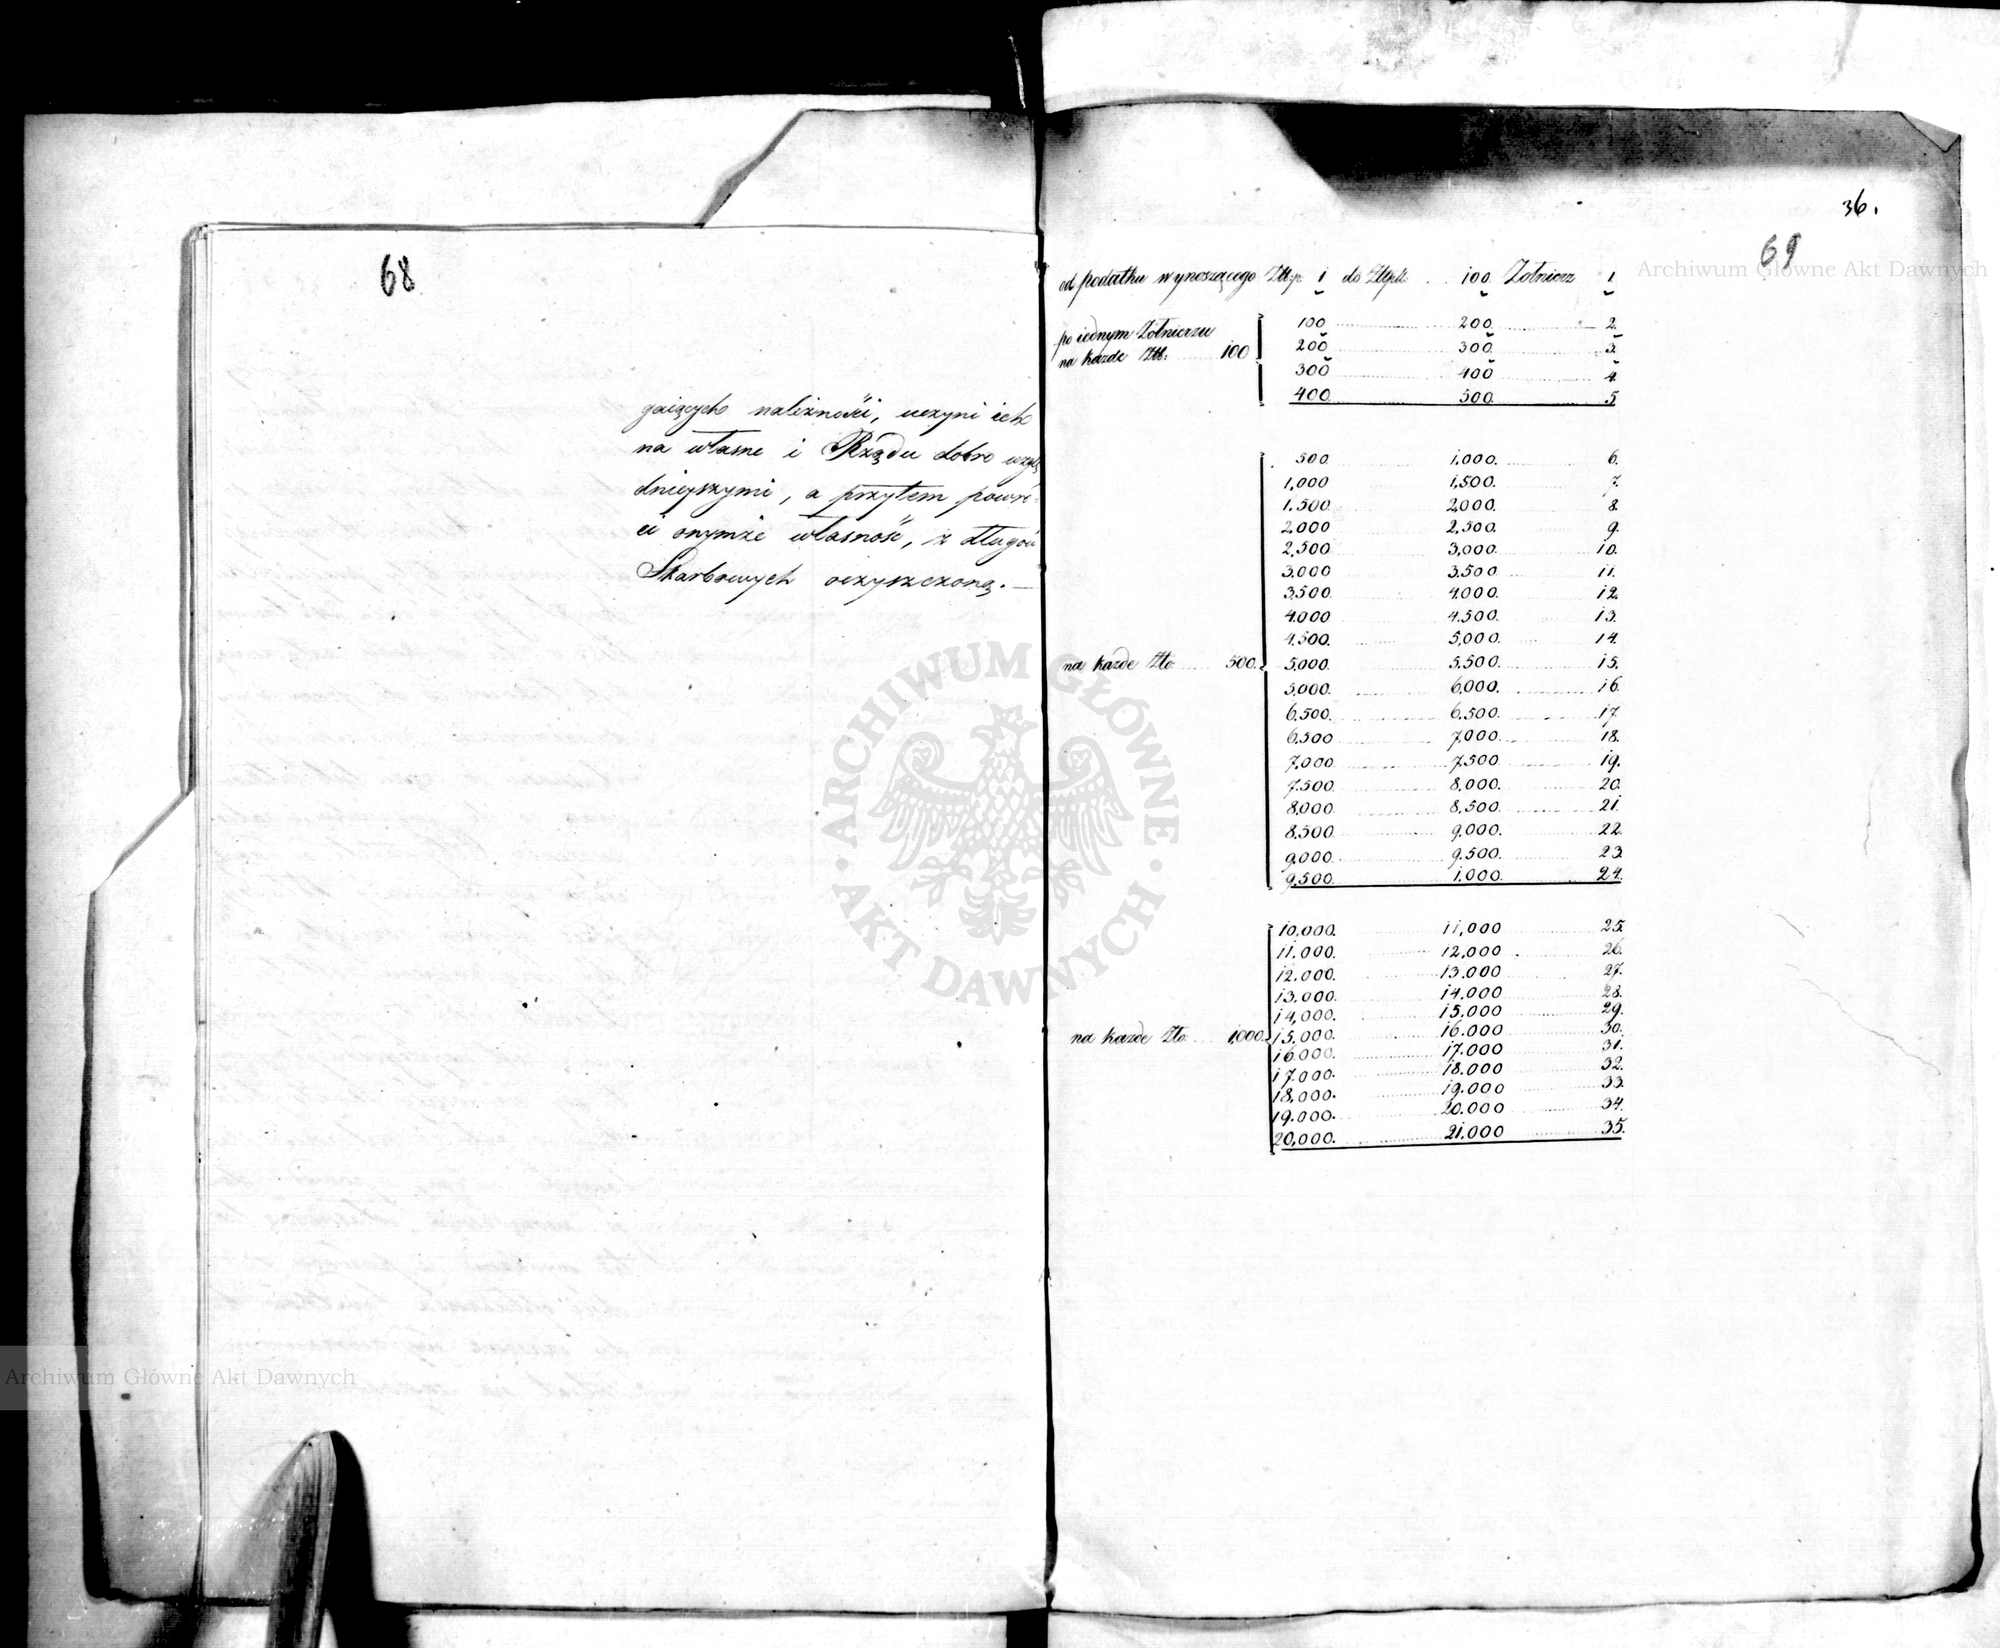 68
gaiących należności, uczyni ich
na własne i Rządu dobro wzglę
dnieyszymi, a przytem powró-
ci onymże własność, z długów
Skarbowych oczyszczoną. —
36.
69
Archiwum Główne Akt Dawnych
od podatku wynoszącego Złłp. 1 do Złłpll. 100 Żołnierz 1.
po iednym Żołnierzu
na każde Złł. 100
100 200 2.
200 300 3.
300 400 4.
400 500 5
500 1,000. 6.
1,000 1,500. 7.
1.500 2,000. 8
2,000 2,500. 9.
2,500 3,000. 10.
3,000 3,500 11.
3,500 4,000. 12.
4,000 4,500. 13.
4,500. 5,000. 14.
na każde Złł. 500. 5,000. 5.500. 15.
5,000. 6,000. 16.
6,500. 6,500. 17.
6,500 7,000. 18.
7,000. 7,500. 19.
7,500. 8,000. 20.
8,000. 8,500. 21.
8,500. 9,000. 22.
9,000. 9,500. 23.
9,500. 1,000. 24.
10,000. 11,000 25.
11.000. 12,000 26.
12.000. 13.000 27.
13,000. 14.000 28.
14,000. 15.000 29.
na każde Złł. 1,000. 15,000. 16.000 30.
16.000. 17.000 31.
17.000. 18.000 32.
18,000. 19.000 33.
19.000. 20.000 34.
20,000. 21,000 35.
ARCHIWUM GŁÓWNE
AKT DAWNYCH
Archiwum Główne Akt Dawnych